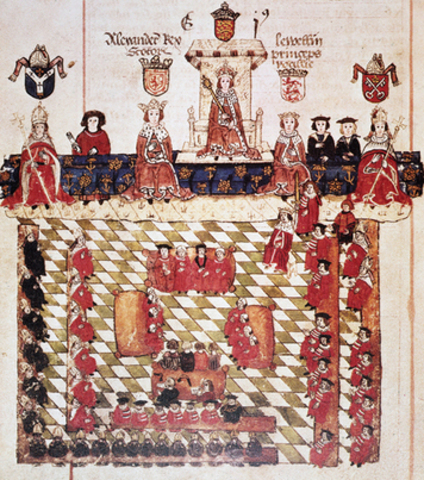 Alexander Rex
Scotor
lewellin
princeps
Wallie